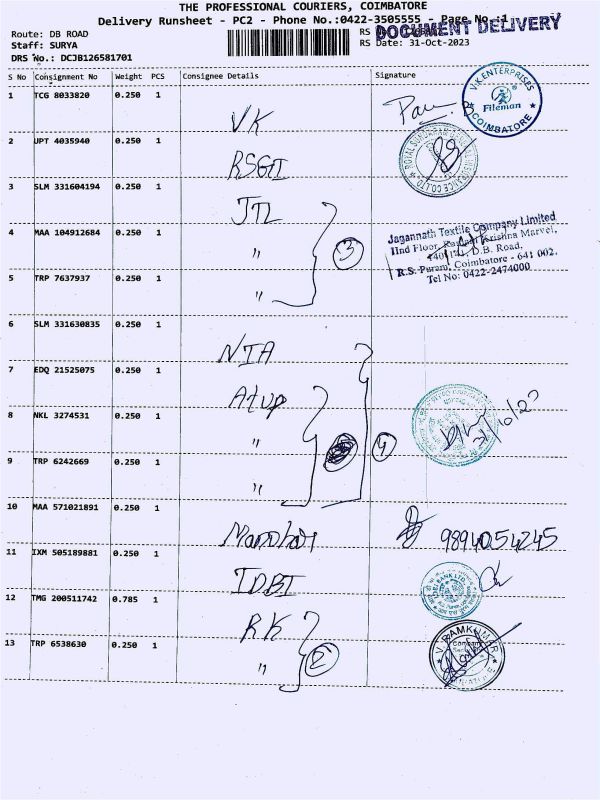 THE PROFESSIONAL COURIERS, COIMBATORE
Delivery Runsheet - PC2 - Phone No.:0422-3505555 - Page No.:1
DOCUMENT DELIVERY
Route: DB ROAD
Staff: SURYA
RS Date: 31-Oct-2023
DRS No.: DCJB126581701
S No Consignment No Weight PCS Consignee Details Signature
1 TCG 8033820 0.250 1 VK
V.K.ENTERPRISES
Fileman
COIMBATORE
2 UPT 4035940 0.250 1
3 SLM 331604194 0.250 1 JTL
4 MAA 104912684 0.250 1 "
3
Jagannath Textile Company Limited
IInd Floor, Krishna Marvel,
D.B. Road,
R.S. Puram, Coimbatore - 641 002.
Tel No: 0422-2474000
5 TRP 7637937 0.250 1 "
6 SLM 331630835 0.250 1 NIA
7 EDQ 21525075 0.250 1
8 NKL 3274531 0.250 1 "
4
9 TRP 6242669 0.250 1 "
10 MAA 571021891 0.250 1 9894054245
11 IXM 505189881 0.250 1 IDBI
12 TMG 200511742 0.785 1 RK
13 TRP 6538630 0.250 1 "
2
V. RAMKUMAR